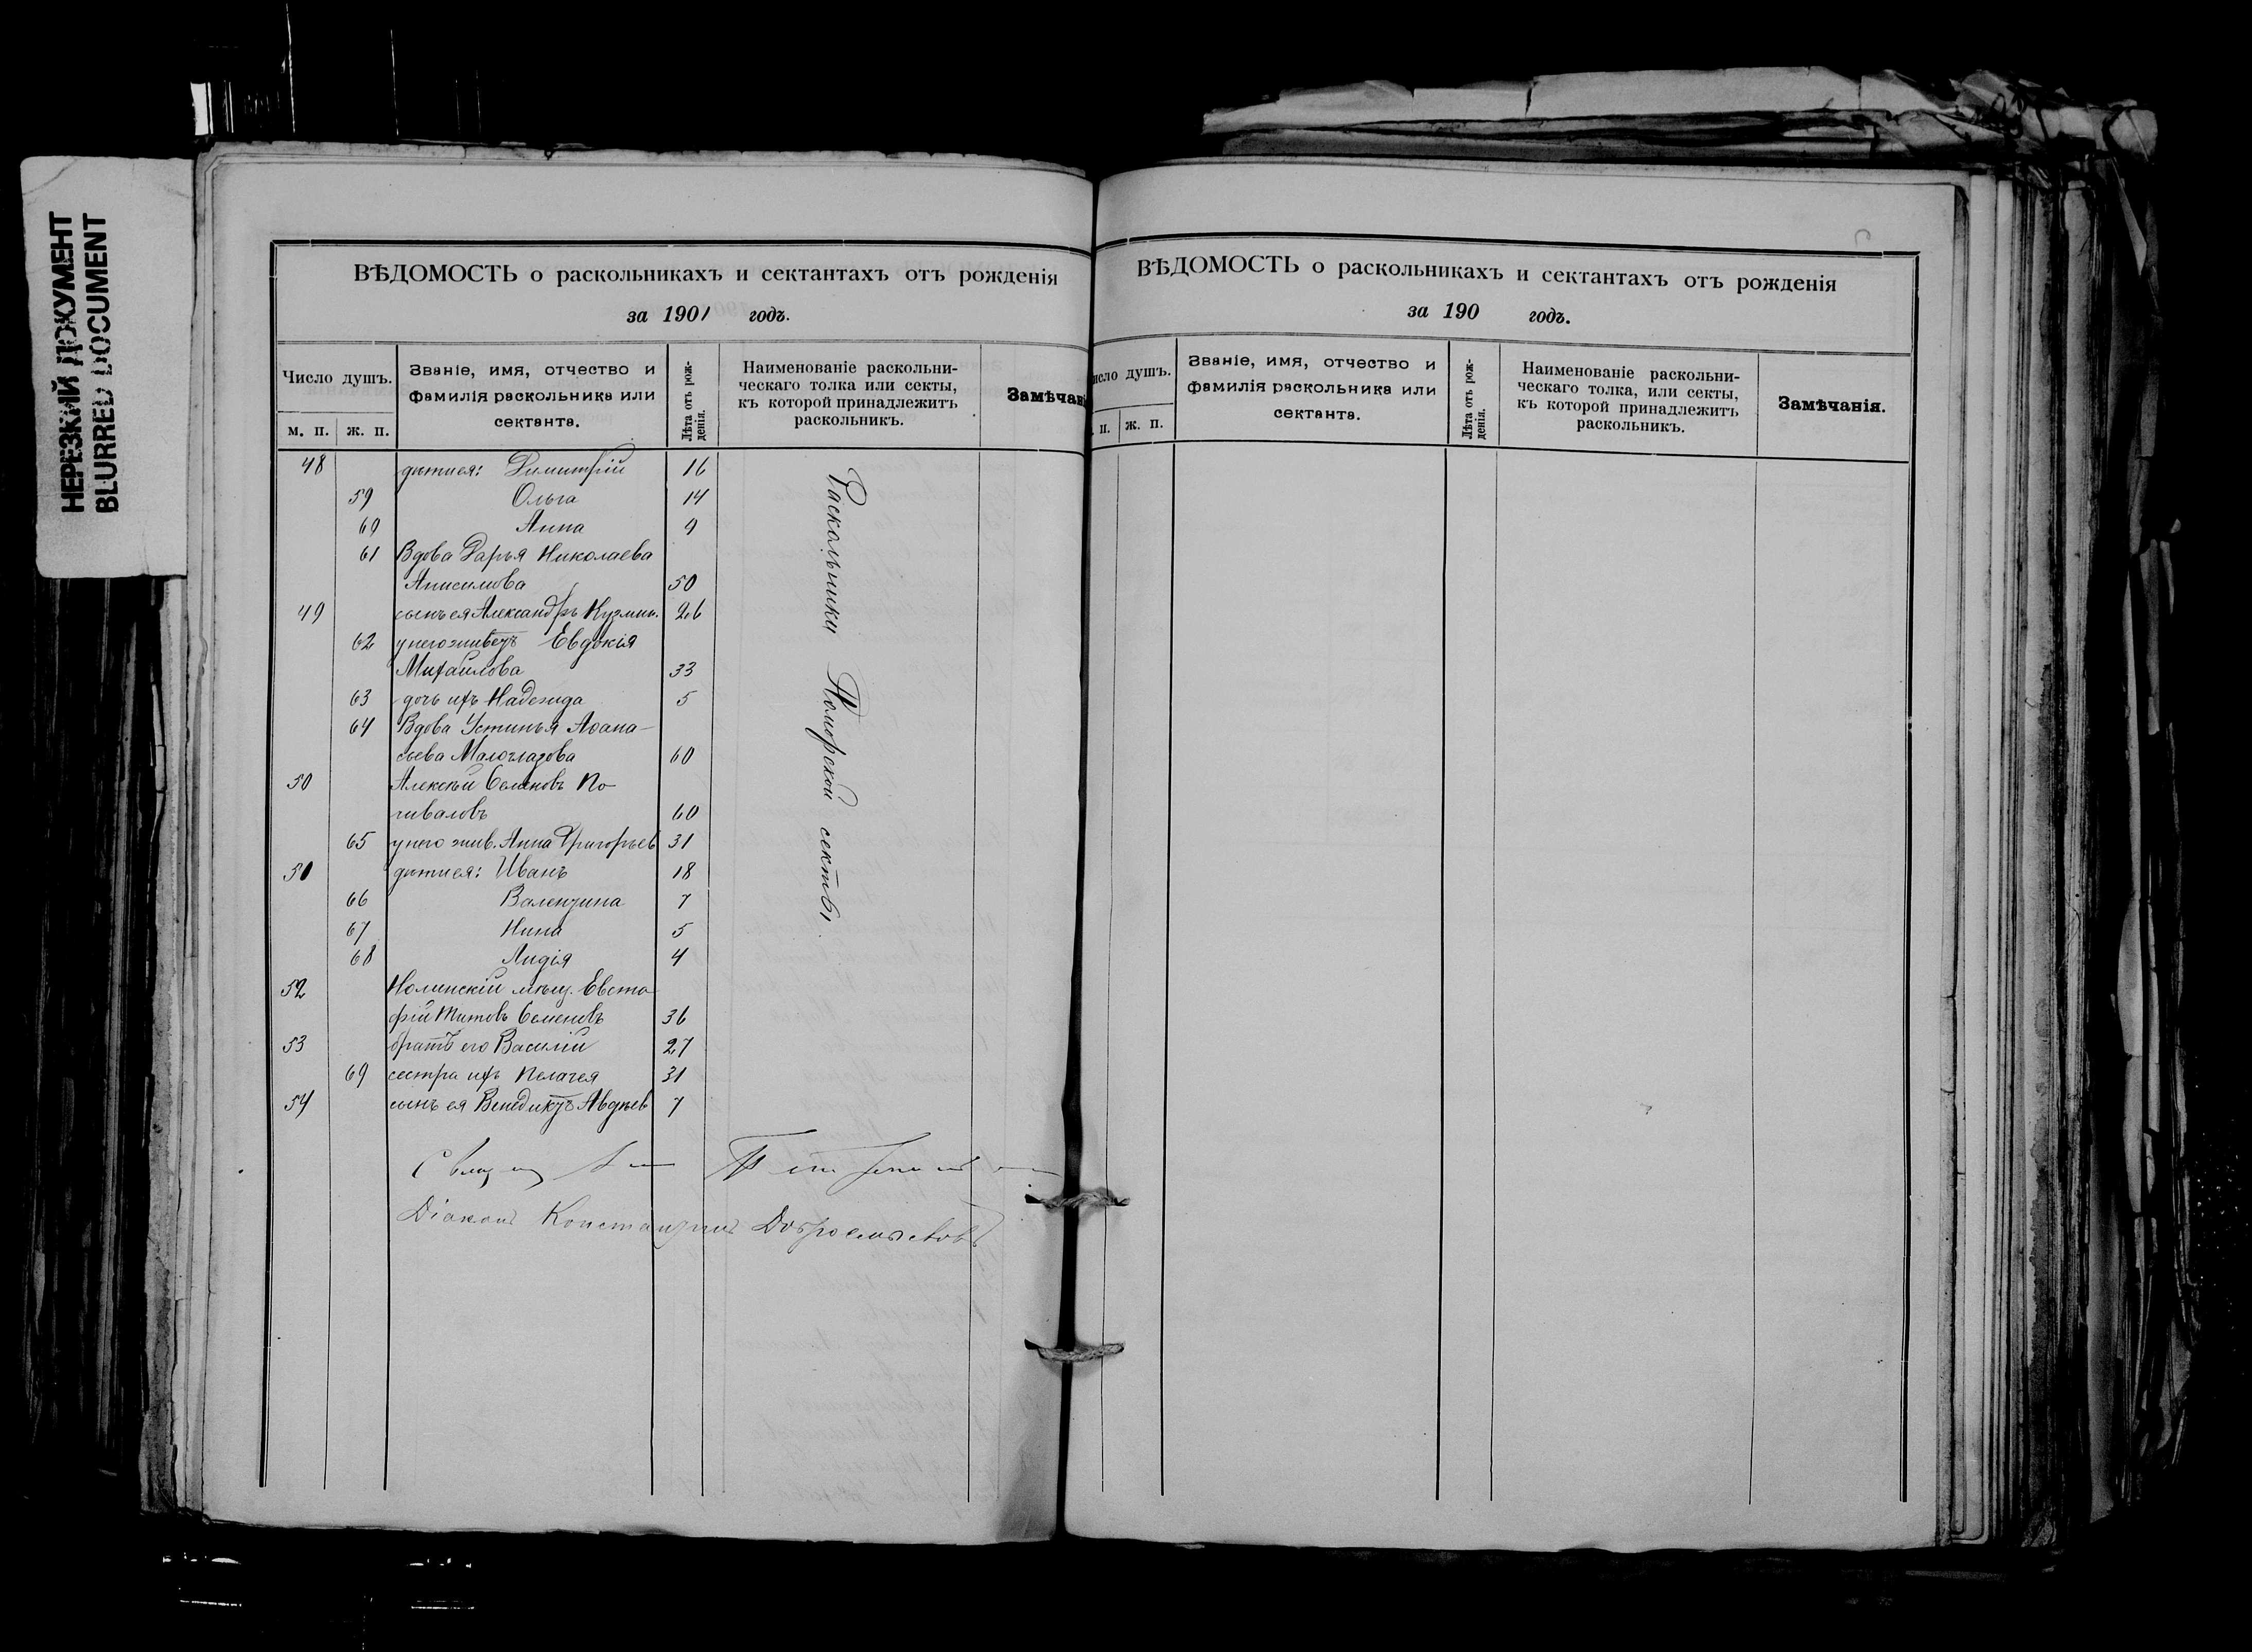 НЕРЕЗКИЙ ДОКУМЕНТ
BLURRED DOCUMENT
ВѢДОМОСТЬ о раскольникахъ и сектантахъ отъ рожденія
за 1901 годъ.
Число душъ.
м. п.
ж. п.
Званіе, имя, отчество и
фамилія раскольника или
сектанта.
Лѣта отъ рож-
денія.
Наименованіе раскольни-
ческаго толка или секты,
къ которой принадлежитъ
раскольникъ.
Замѣчан
48 дѣти ея: Димитрій 16
59 Ольга 14
60 Анна 9
61 Вдова Дарья Николаева
Анисимова 50
49 сынъ ея Александръ Кузмин. 26
62 у него живетъ Евдокія
Михайлова 33
63 дочь ихъ Надежда 5
64 Вдова Устинья Аѳана-
сьева Малоглазова 60
50 Алексѣй Семеновъ По-
чиваловъ 60
65 у него жив. Анна Григорьев 31
51 дѣти ея: Иванъ 18
66 Валентина 7
67 Нина 5
68 Лидія 4
52 Нолинскій мѣщ. Евста
фій Титовъ Семеновъ 36
53 братъ его Василій 27
69 сестра ихъ Пелагея 31
54 сынъ ея Венедиктъ Авдѣев 7
Раскольники Поморской секты.
Діаконъ Константинъ Добросмысловъ
ВѢДОМОСТЬ о раскольникахъ и сектантахъ отъ рожденія
за 190 годъ.
исло душъ.
п.
ж. п.
Званіе, имя, отчество и
фамилія раскольника или
сектанта.
Лѣта отъ рож-
денія.
Наименованіе раскольни-
ческаго толка, или секты,
къ которой принадлежитъ
раскольникъ.
Замѣчанія.